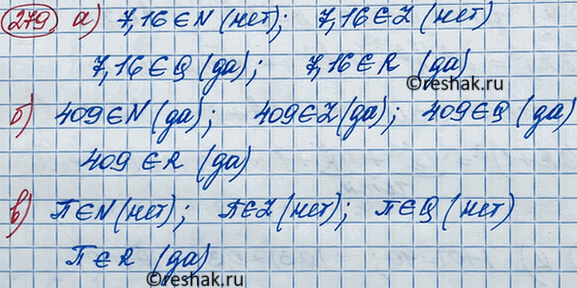 279 а) 7,16 ∈ N (нет); 7,16 ∈ Z (нет)
7,16 ∈ Q (да); 7,16 ∈ R (да)
©reshak.ru
б) 409 ∈ N (да); 409 ∈ Z (да); 409 ∈ Q (да)
409 ∈ R (да)
в) π ∈ N (нет); π ∈ Z (нет); π ∈ Q (нет)
π ∈ R (да)
©reshak.ru